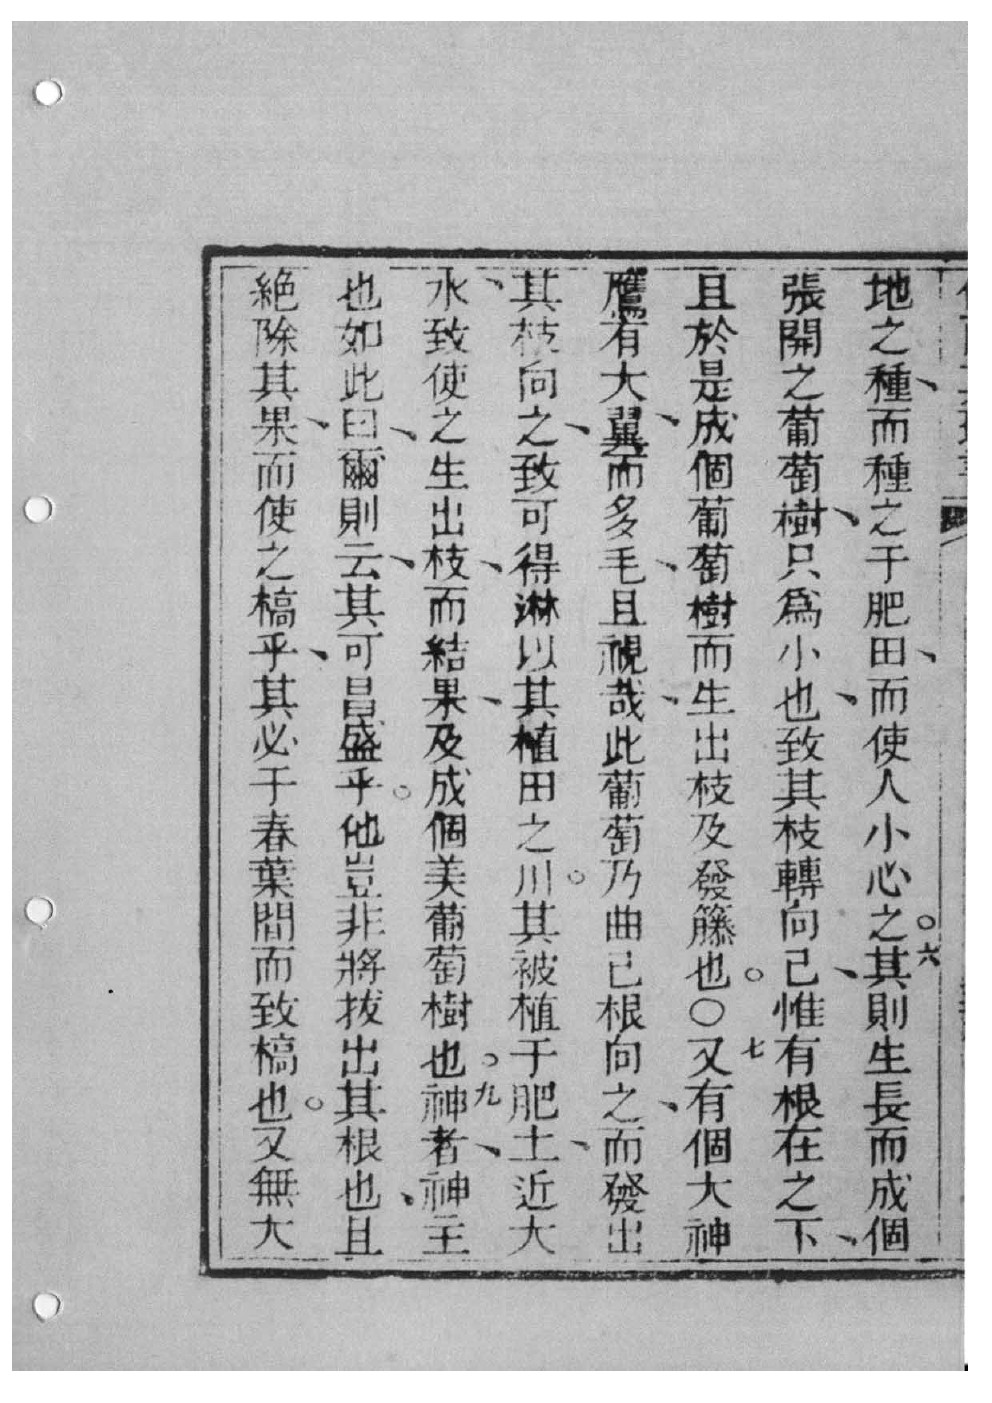 地之種、而種之于肥田、而使人小心之。六其則生長而成個
張開之葡萄樹、只爲小也、致其枝轉向己、惟有根在之下、
且於是成個葡萄樹而生出枝及發籐也。○七又有個大神
鷹有大翼、而多毛、且視哉、此葡萄乃曲已根向之、而發出
其枝向之、致可得淋以其植田之川。其被植于肥土、近大
水、致使之生出枝、而結果、及成個美葡萄樹也。九神者、神主
也如此曰、爾則云、其可昌盛乎。他豈非將拔出其根也、且
絕除其果、而使之槁乎、其必于春葉間而致槁也。又無大